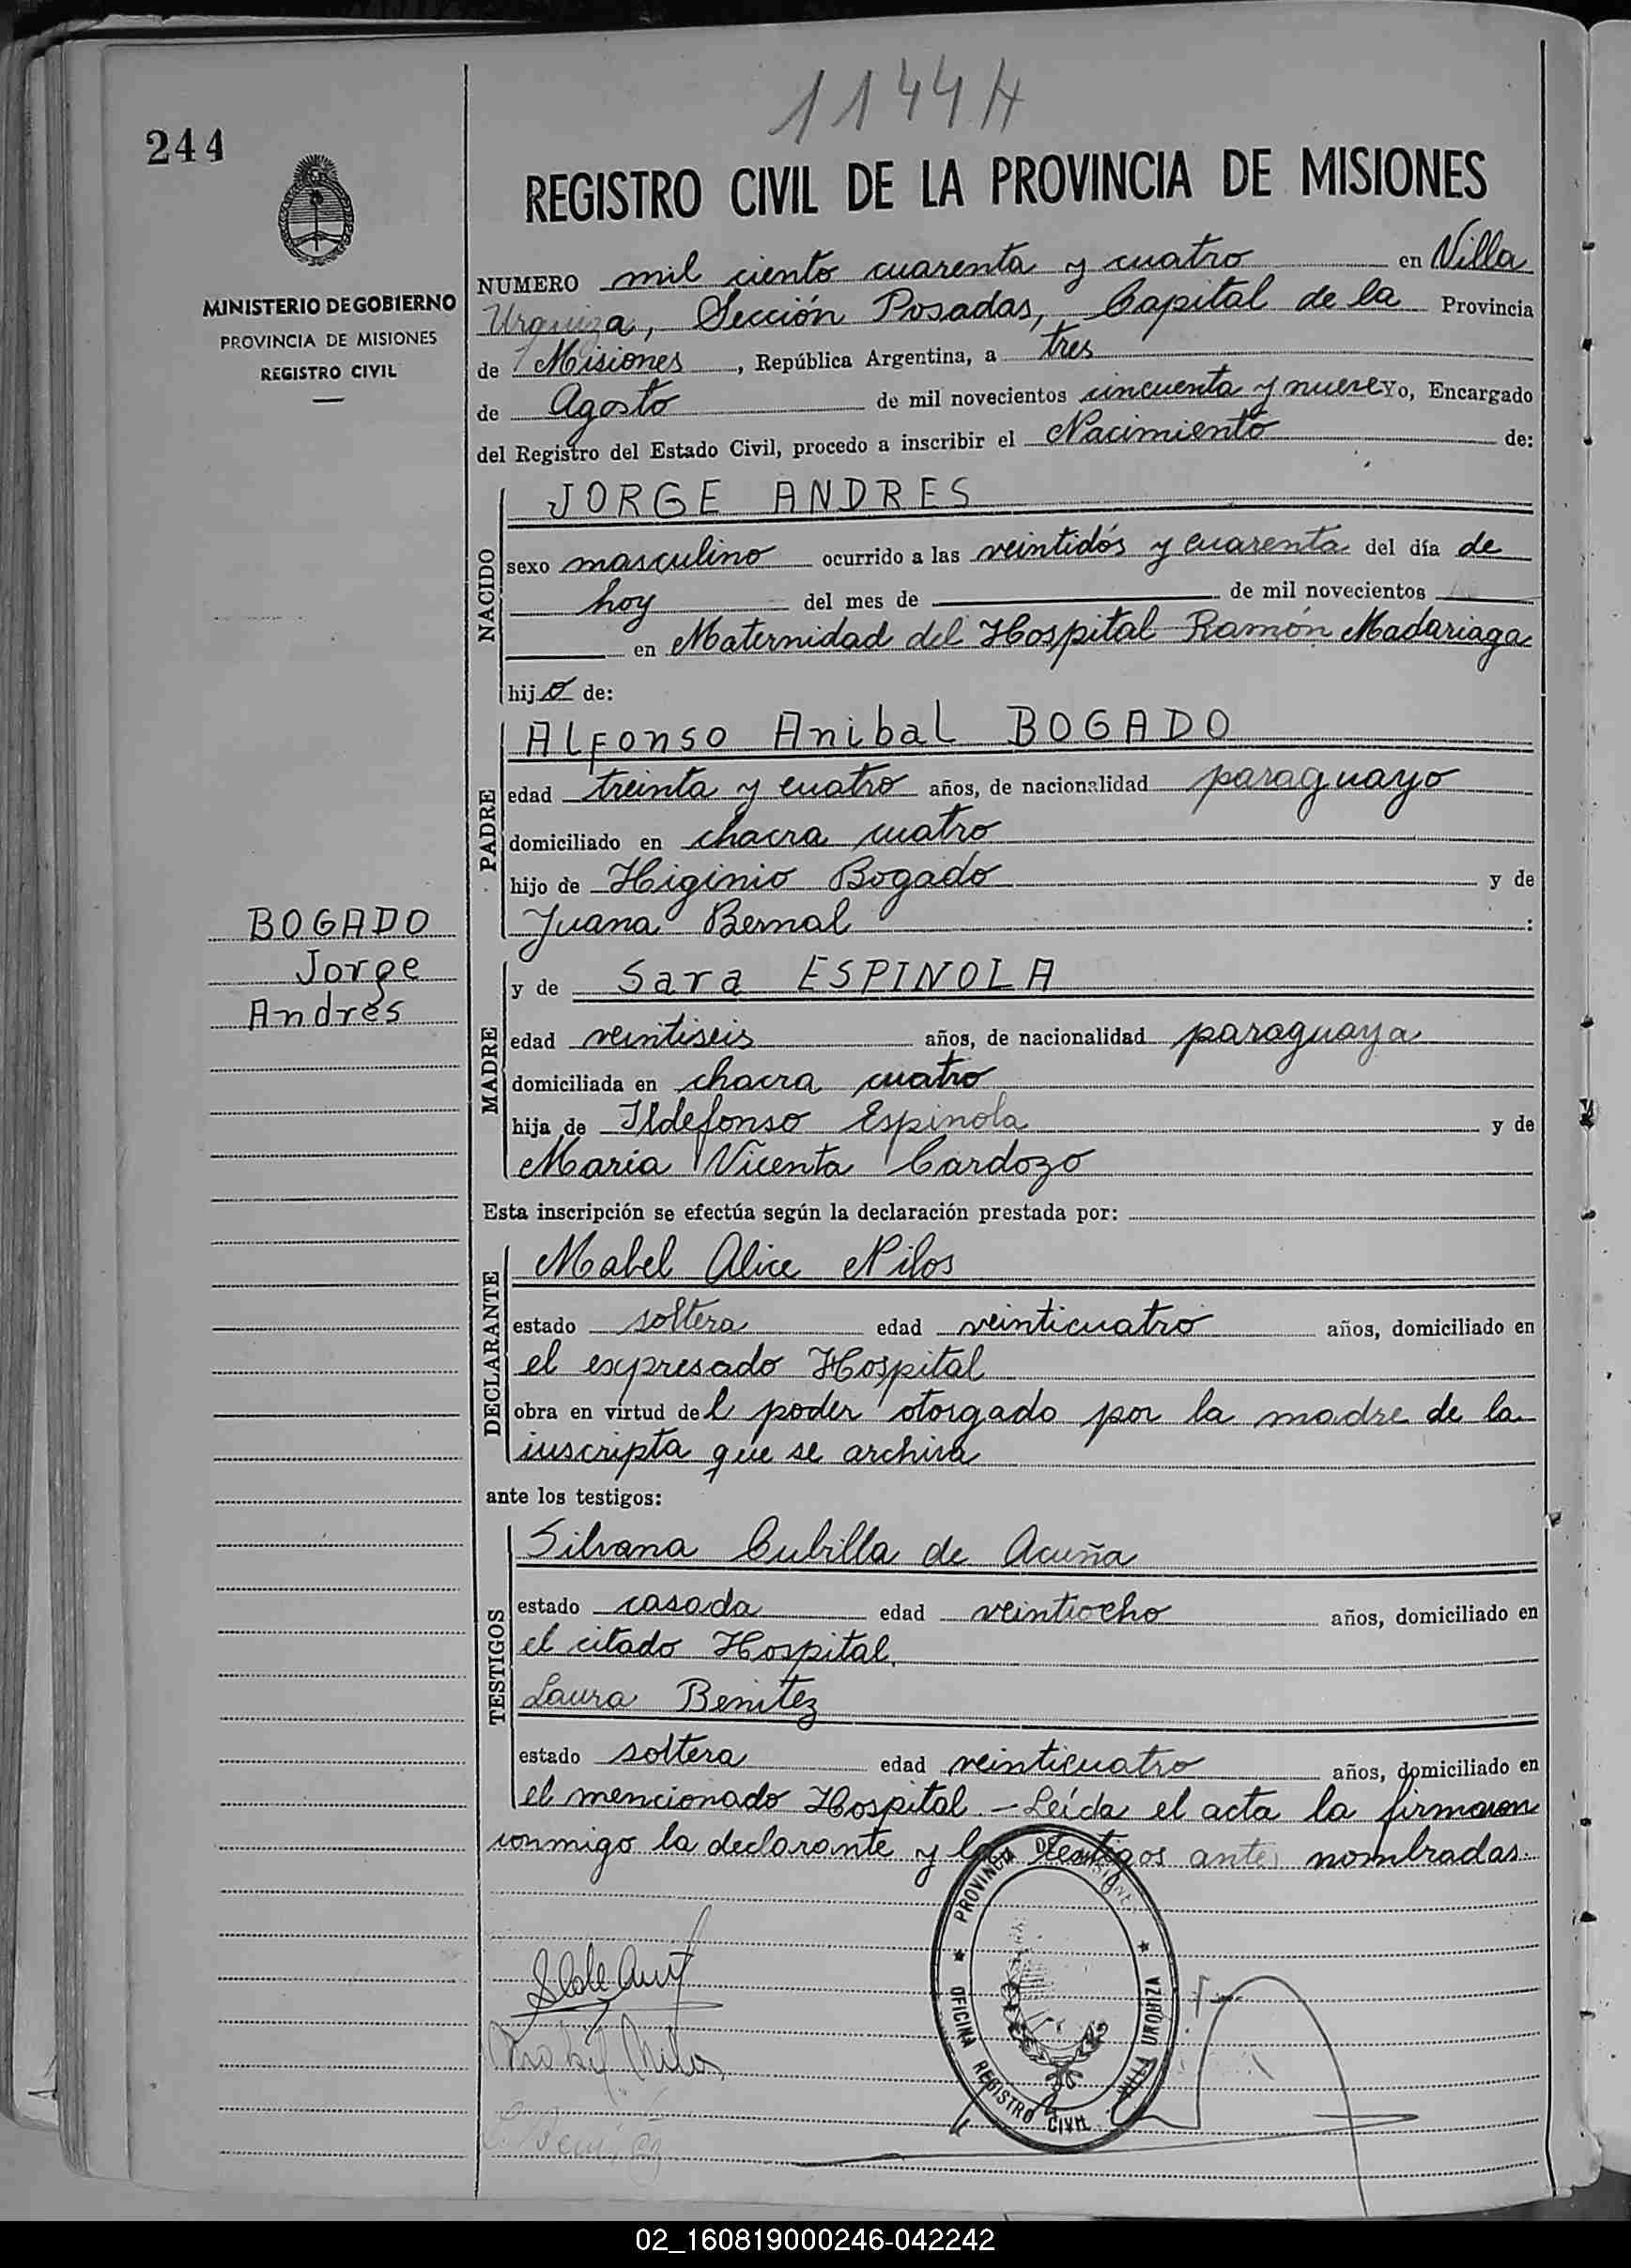 1144 H
244
REGISTRO CIVIL DE LA PROVINCIA DE MISIONES
MINISTERIO DE GOBIERNO
PROVINCIA DE MISIONES
REGISTRO CIVIL
NUMERO mil ciento cuarenta y cuatro en Villa
Urquiza, Sección Posadas, Capital de la Provincia
de Misiones, República Argentina, a tres
de Agosto de mil novecientos cincuenta y nueve yo, Encargado
del Registro del Estado Civil, procedo a inscribir el Nacimiento de:
NACIDO
JORGE ANDRES
sexo masculino ocurrido a las veintidós y cuarenta del día de
hoy del mes de de mil novecientos
en Maternidad del Hospital Ramón Madariaga
hijo de:
PADRE
Alfonso Anibal BOGADO
edad treinta y cuatro años, de nacionalidad paraguayo
domiciliado en chacra cuatro
hijo de Higinio Bogado y de
Juana Bernal :
BOGADO
Jorge
Andrés
MADRE
y de Sara ESPINOLA
edad veintiseis años, de nacionalidad paraguaya
domiciliada en chacra cuatro
hija de Ildefonso Espinola y de
Maria Vicenta Cardozo
Esta inscripción se efectúa según la declaración prestada por:
DECLARANTE
Mabel Alice Nilos
estado soltera edad veinticuatro años, domiciliado en
el expresado Hospital
obra en virtud del poder otorgado por la madre de la
inscripta que se archiva
ante los testigos:
TESTIGOS
Silvana Cubilla de Acuña
estado casada edad veintiocho años, domiciliado en
el citado Hospital.
Laura Benitez
estado soltera edad veinticuatro años, domiciliado en
el mencionado Hospital. - Leída el acta la firmaron
conmigo la declarante y las testigos antes nombradas.
PROVINCIA DE MISIONES
OFICINA REGISTRO CIVIL
VILLA URQUIZA
Mabel Nilos
L. Benitez
02_160819000246-042242